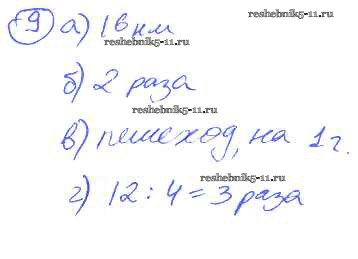 9 а) 16 км
reshebnik5-11.ru
reshebnik5-11.ru
б) 2 раза
reshebnik5-11.ru
в) пешеход, на 1 г.
reshebnik5-11.ru
г) 12 : 4 = 3 раза